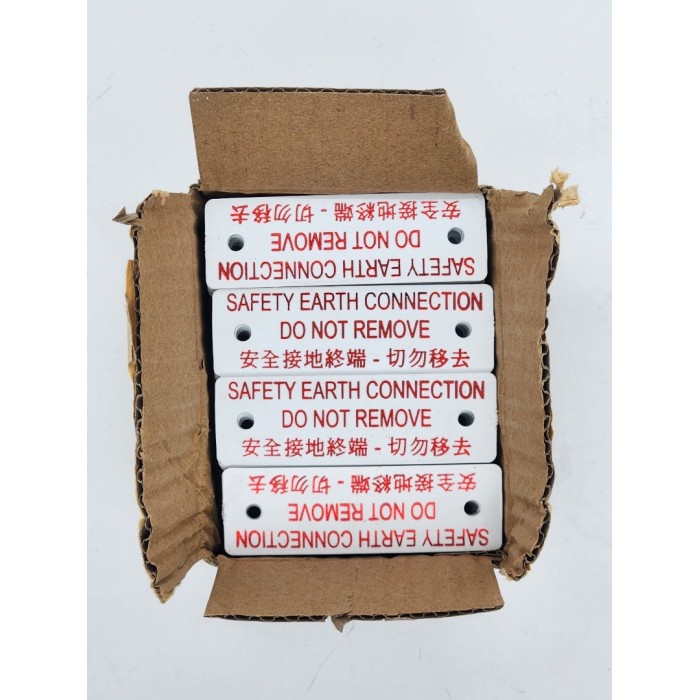 安全接地終端 - 切勿移去
DO NOT REMOVE
SAFETY EARTH CONNECTION
SAFETY EARTH CONNECTION
DO NOT REMOVE
安全接地終端 - 切勿移去
SAFETY EARTH CONNECTION
DO NOT REMOVE
安全接地終端 - 切勿移去
安全接地終端 - 切勿移去
DO NOT REMOVE
SAFETY EARTH CONNECTION